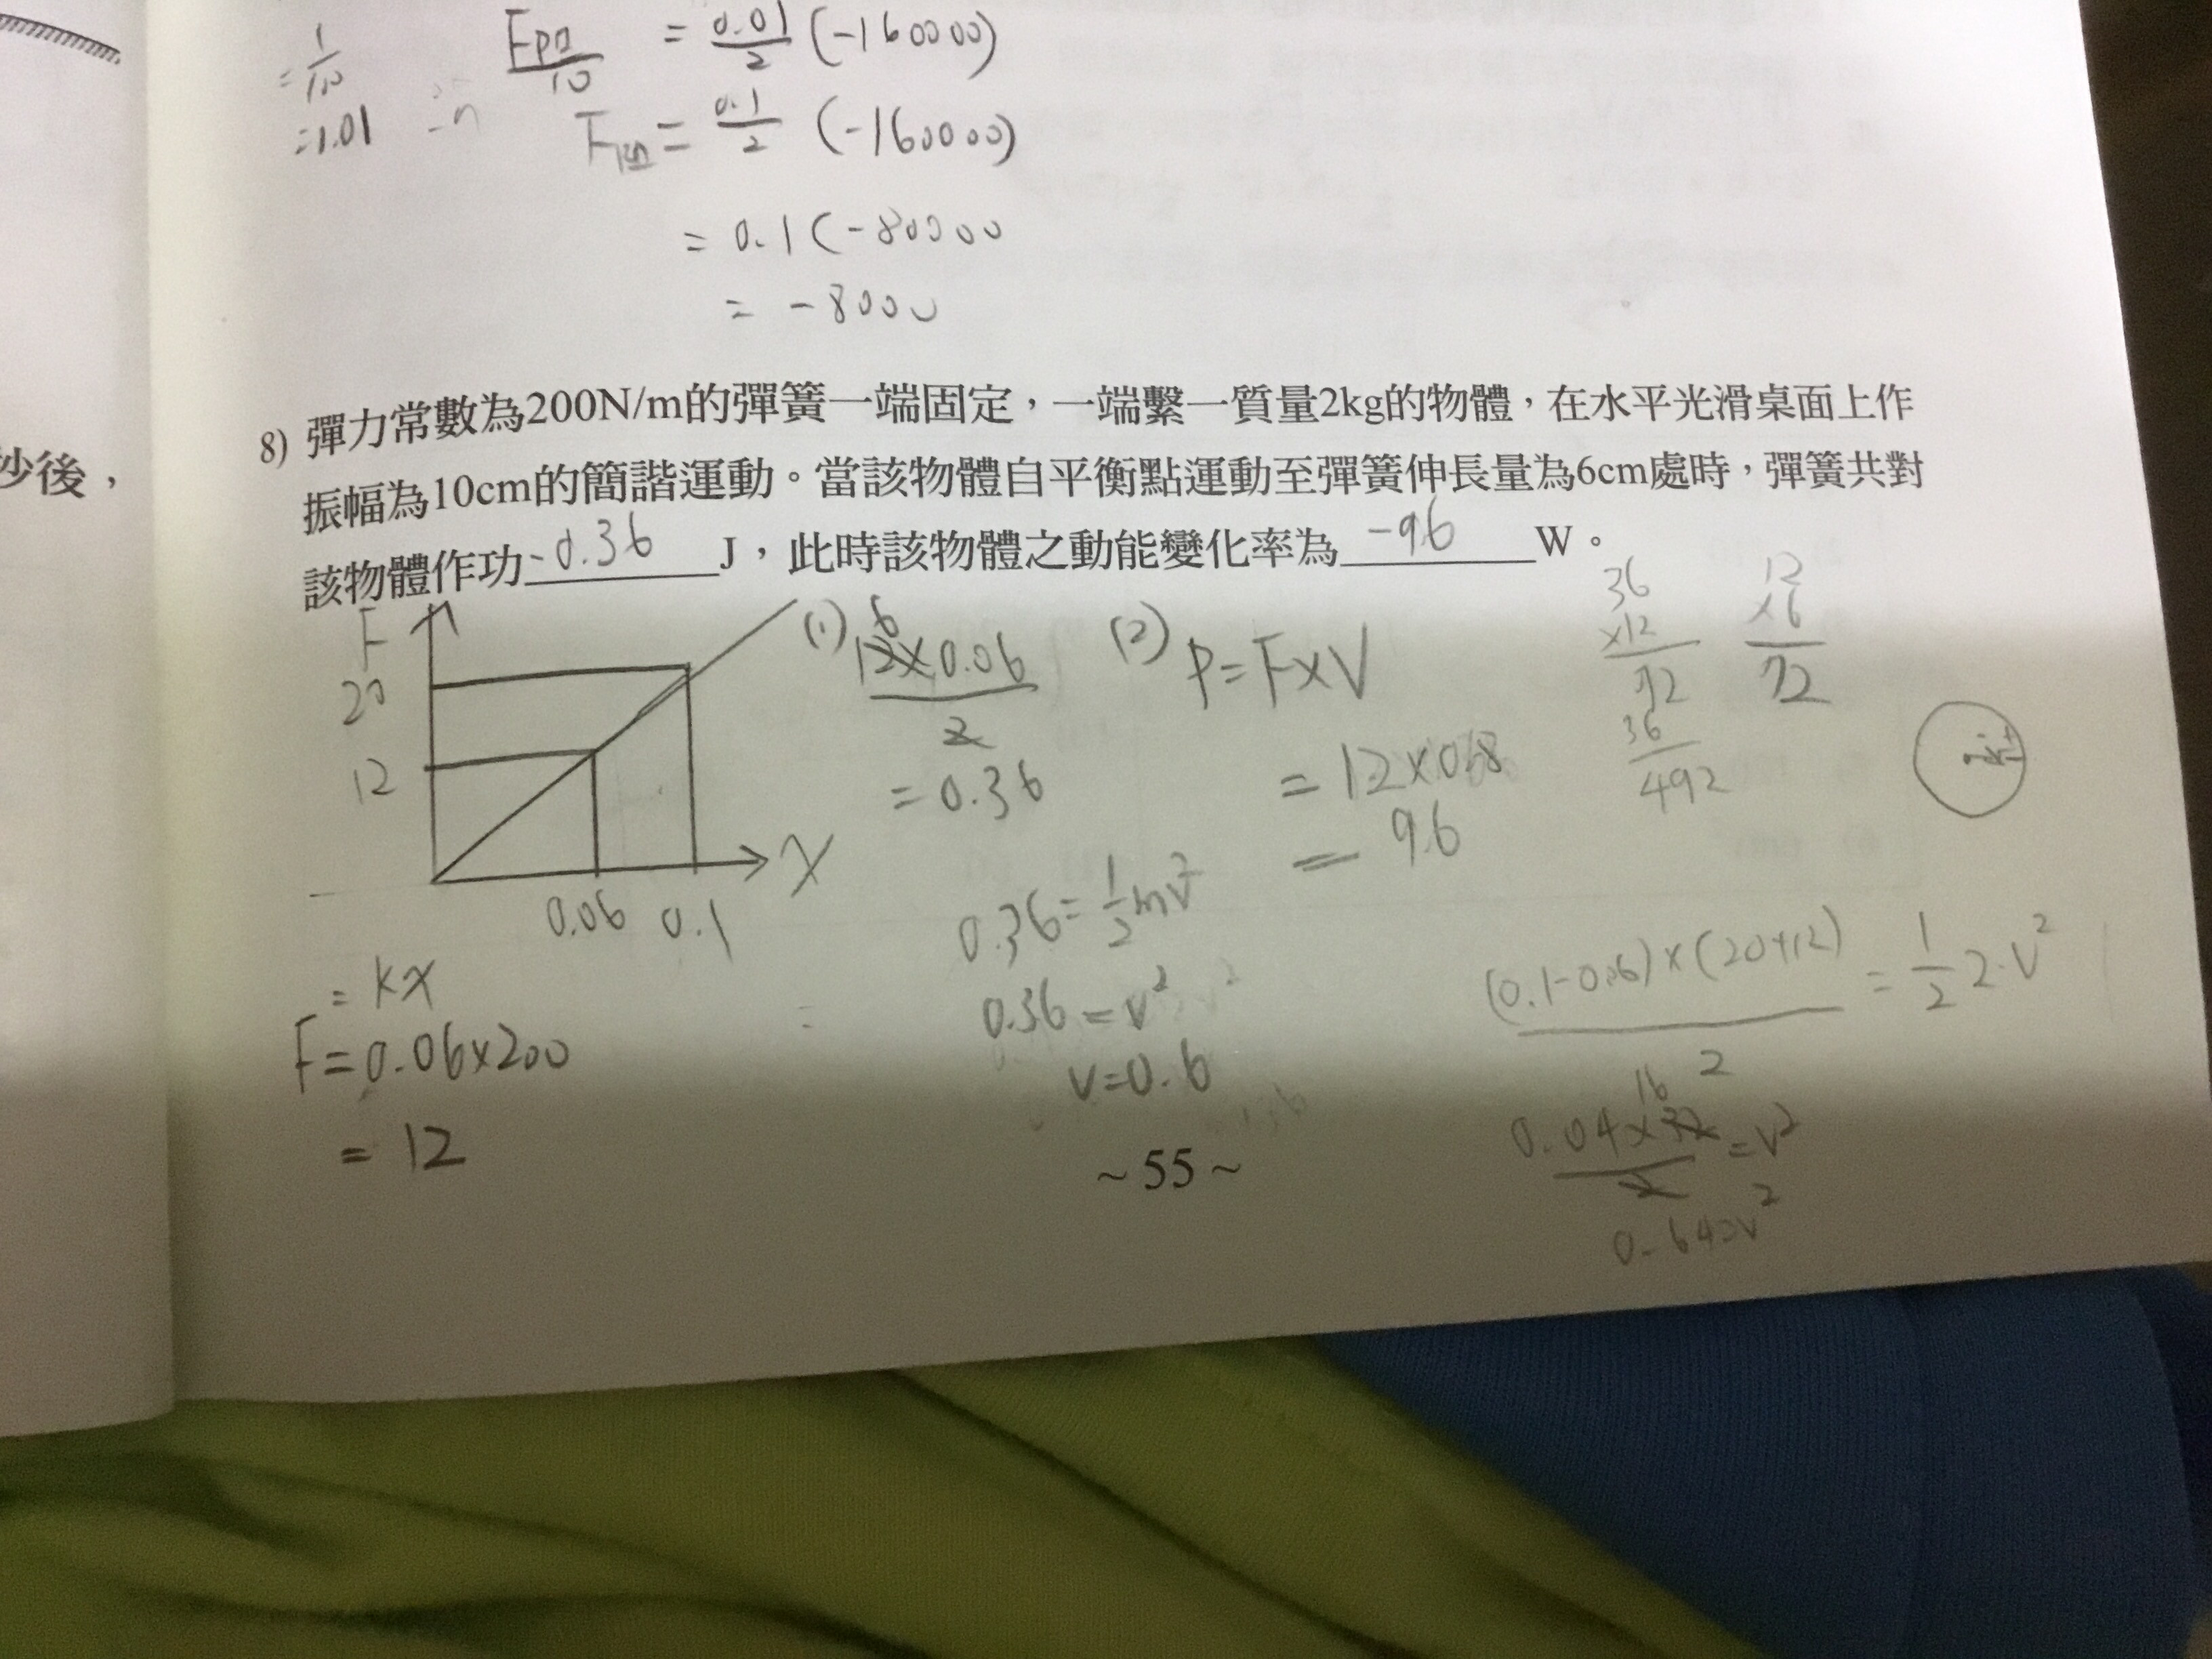 = 1/10
= 1.01
= 0.01/2 (-160000)
= 0.1/2 (-160000)
= 0.1(-80000
= -8000
秒後，
8) 彈力常數為200N/m的彈簧一端固定，一端繫一質量2kg的物體，在水平光滑桌面上作
振幅為10cm的簡諧運動。當該物體自平衡點運動至彈簧伸長量為6cm處時，彈簧共對
該物體作功 -0.36 J，此時該物體之動能變化率為 -9.6 W。
F
20
12
0.06 0.1
X
= kx
F=0.06x200
= 12
(1) 6
12x0.06
2
= 0.36
(2) P=FxV
= 12x0.8
= 9.6
0.36=1/2mv²
0.36=v²
v=0.6
36
x12
72
36
492
12
x6
72
(0.1-0.06)x(20+12)/2 = 1/2 2·v²
16
0.04x32/2 = v²
0.64=v²
~55~